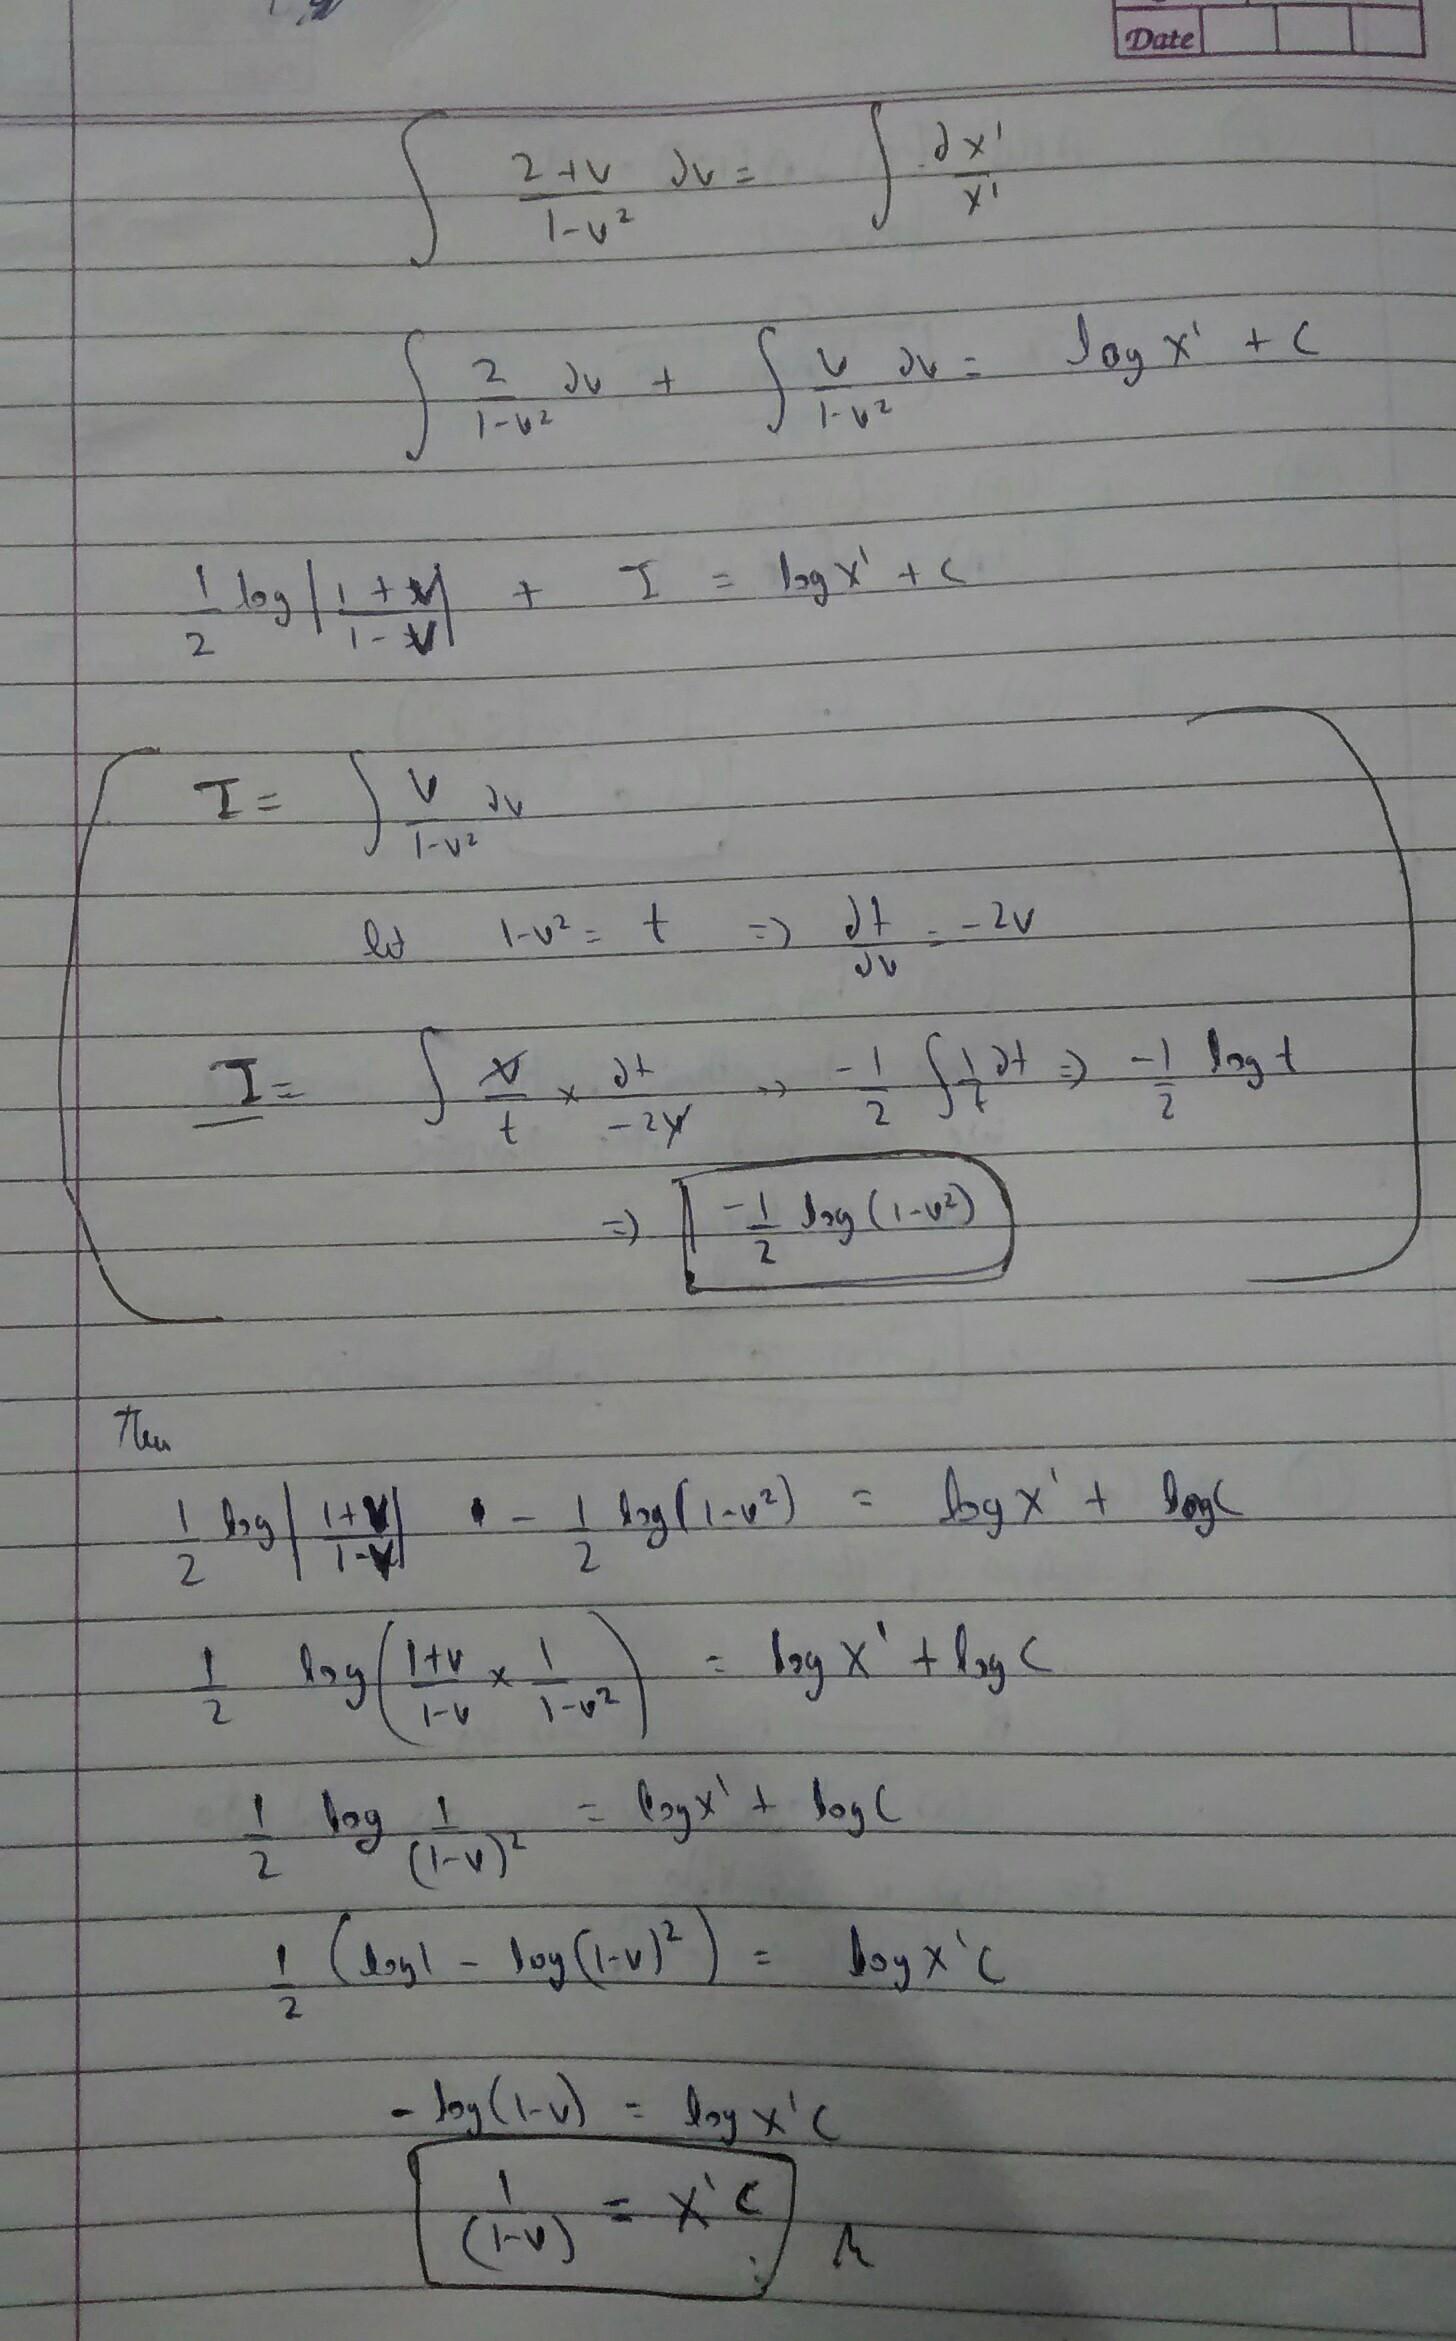 Date
∫ (2+v)/(1-v²) ∂v = ∫ ∂x'/x'
∫ 2/(1-v²) ∂v + ∫ v/(1-v²) ∂v = log x' + c
1/2 log |(1+v)/(1-v)| + I = log x' + c
I = ∫ v/(1-v²) ∂v
let 1-v² = t ⇒ ∂t/∂v = -2v
I = ∫ v/t × ∂t/(-2v) ⇒ -1/2 ∫ 1/t ∂t ⇒ -1/2 log t
⇒ -1/2 log (1-v²)
Then
1/2 log |(1+v)/(1-v)| - 1/2 log (1-v²) = log x' + log C
1/2 log ((1+v)/(1-v) × 1/(1-v²)) = log x' + log C
1/2 log 1/(1-v)² = log x' + log C
1/2 (log 1 - log (1-v)²) = log x' C
- log (1-v) = log x' C
1/(1-v) = x' C